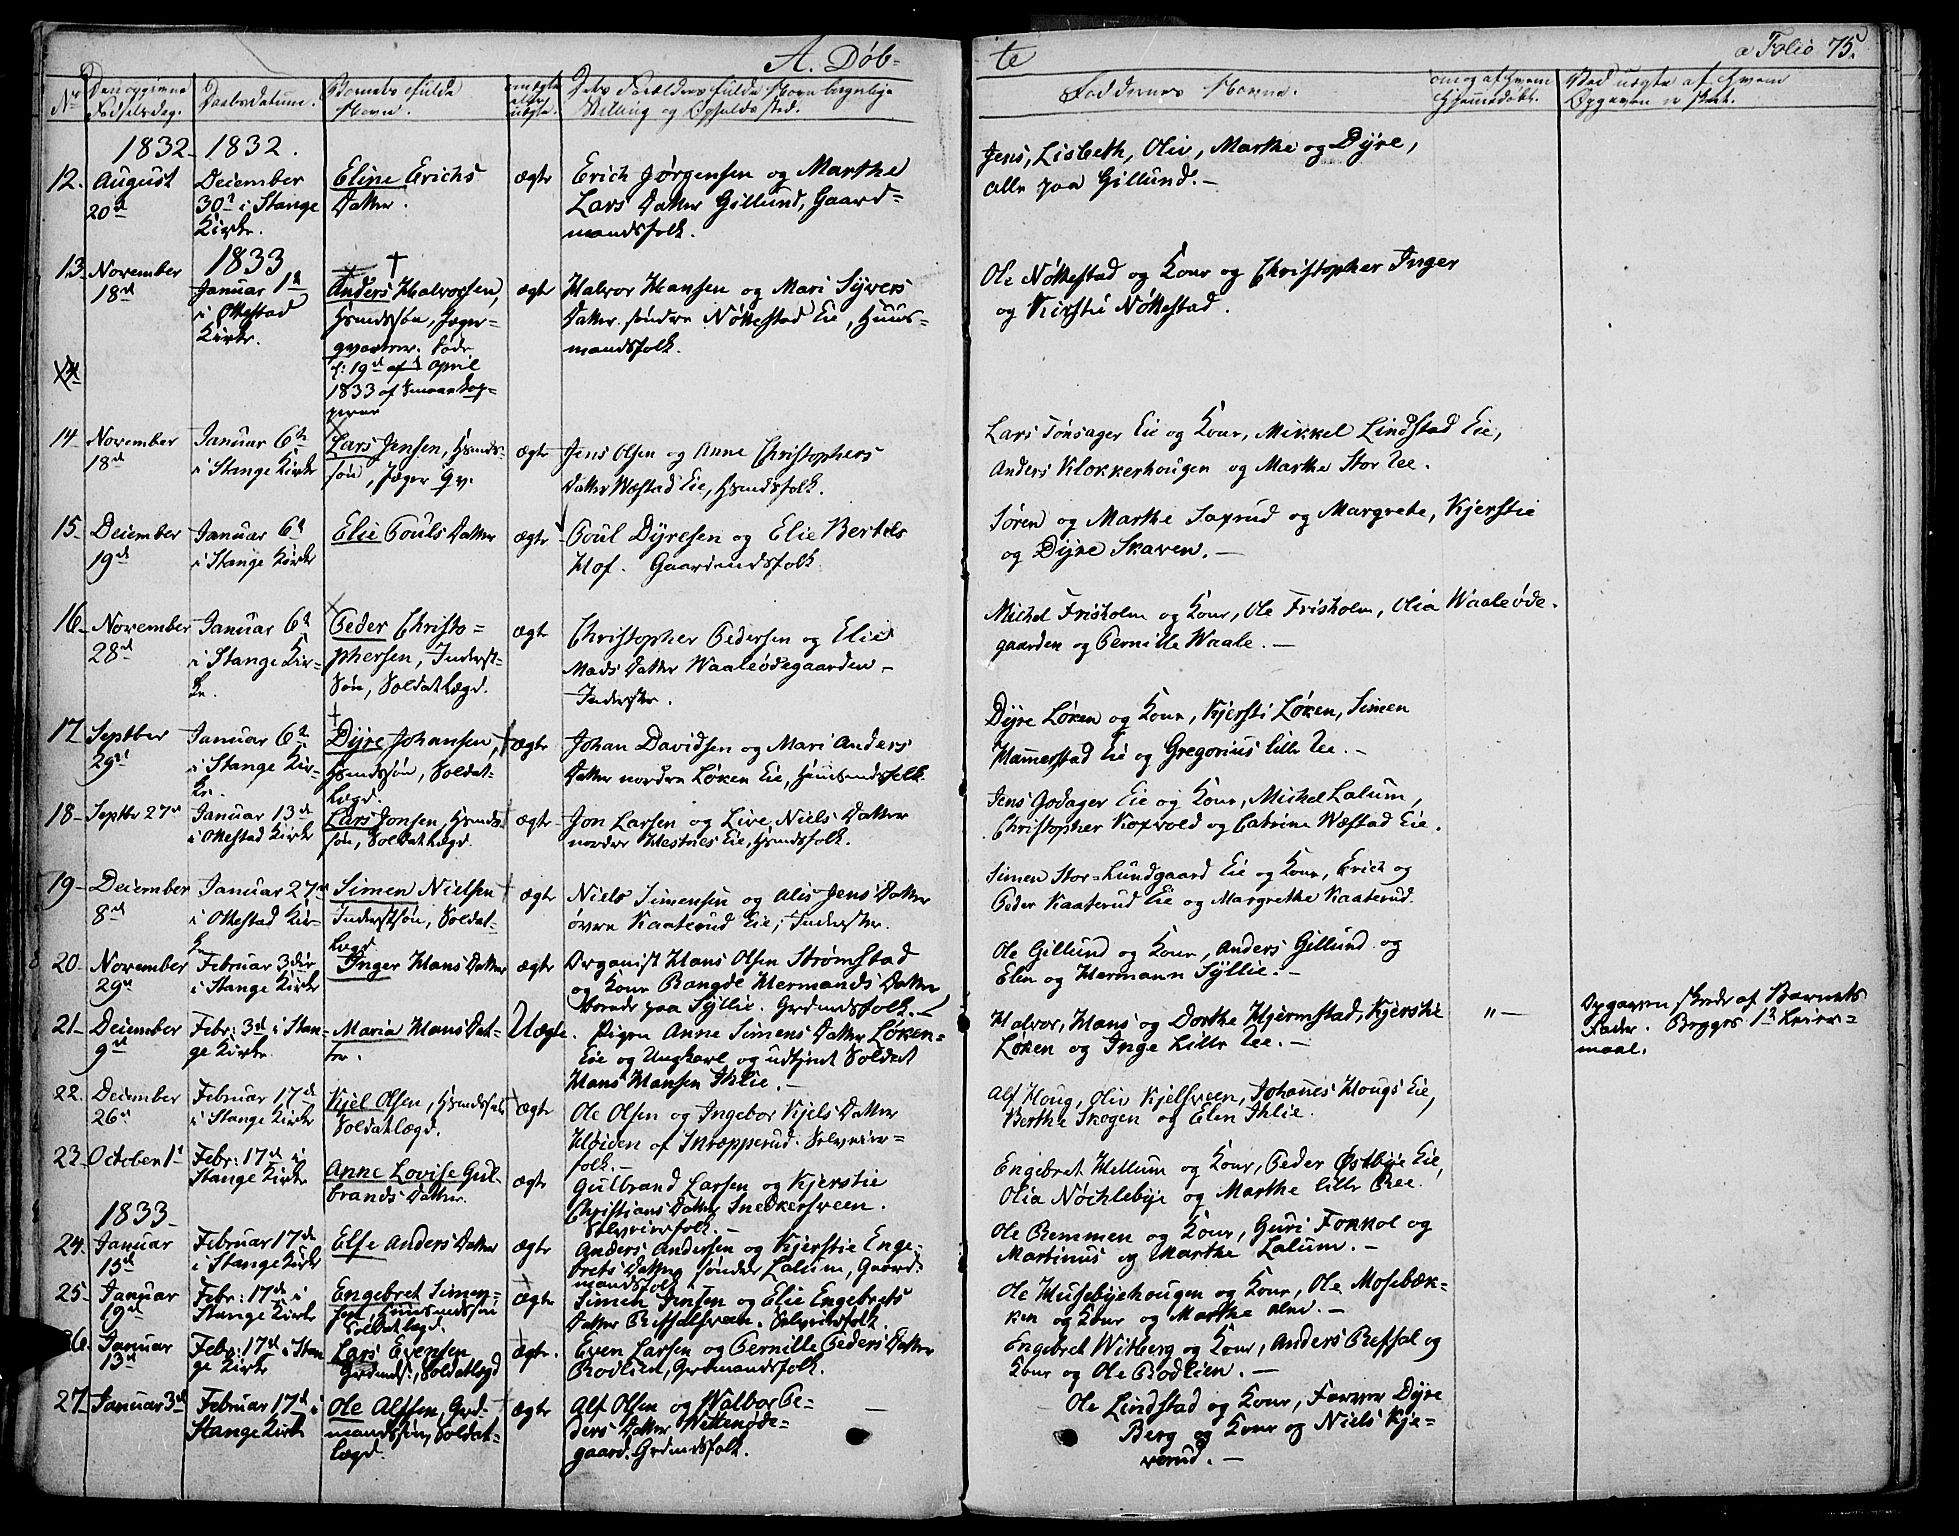 A. Døb-
te
a Folio 75.
No
Den opgivne Fødselsdag.
Daabsdatum.
Barnets fulde Navn.
ægte eller uægte.
Dets Forældres fulde Navn borgerlige Stilling og Opholdssted.
Faddernes Navne.
om og af hvem hjemmedøbt.
Ved uægte af hvem Opgaven er skeet.
1832 1832.
12. August 20d
December 30t i Stange Kirke.
Eline Erichs Datter.
ægte
Erich Jørgensen og Marthe
Lars Datter Gillund, Gaard=
mandsfolk.
Jens, Lisbeth, Oliv, Marthe og Dyre,
alle paa Gillund. -
1833
13. November 18d
Januar 1t i Ottestad Kirke.
Anders Halvorsen,
Hsmdssøn, Jæger-
qvarteer. Døde
d: 19d April
1833 af Smaakop-
perne
ægte
Halvor Hansen og Mari Syvers
Datter søndre Nøttestad Eie, Huus-
mandsfolk.
Ole Nøttestad og Kone og Christopher Inger
og Kirstie Nøttestad.
14. November 18d
Januar 6te i Stange Kirke
Lars Jensen, Hsmds-
søn, Jæger Qv.
ægte
Jens Olsen og Anne Christophers
Datter Wæstad Eie, Hsmdsfolk.
Lars Tønsager Eie og Kone, Mikkel Lindstad Eie,
Anders Klokkerhougen og Marthe Stor Ree.
15. December 19d
Januar 6t i Stange Kirke
Elie Pouls Datter
ægte
Poul Dyresen og Elie Bertels
Hof. Gaardmdsfolk
Søren og Marthe Saxrud og Margrete, Kjerstie
og Dyre Skaven. -
16. November 28d
Januar 6t i Stange Kirke.
Peder Christo=
phersen, Inderst-
Søn, Soldatlægd.
ægte
Christopher Pedersen og Elie
Mads Datter Waaleødegaarden -
Inderster.
Michel Frisholm og Kone, Ole Frisholm, Olia Waaleøde-
gaarden og Pernille Waale. -
17. Septber 29d
Januar 6t i Stange Kirke.
Dyre Johansen,
Hsmdssøn, Soldat-
Lægd.
ægte
Johan Davidsen og Mari Anders
Datter nordre Løken Eie, Huusmdsfolk.
Dyre Løken og Kone, Kjersti Løken, Simen
Hamerstad Eie og Gregorius lille Ree. -
18. Septbr 27d
Januar 13d i Ottestad Kirke
Lars Jonsen, Hsmds-
søn, Soldatlægd.
ægte
Jon Larsen og Live Niels Datter
nordre Hestnes Eie, Hsmdsfolk.
Jens Godager Eie og Kone, Michel Lalum,
Christopher Koxvold og Catrine Wæstad Eie.
19. December 8d
Januar 27d i Ottestad Kir-
ke
Simen Nielsen
Inderstsøn, Soldat-
lægd
ægte
Niels Simensen og Alis Jens Datter
øvre Kaaterud Eie, Inderster.
Simen Stor=Lundgaard Eie og Kone, Erich og
Peder Kaaterud Eie og Margrethe Kaaterud.
20. November 29d
Februar 3die i Stange Kirke
Inger Hans Datter
ægte
Organist Hans Olsen Strømstad
og Kone Rangde Hermands Datter
boende paa Syllie. Grdmdsfolk. -
Ole Gillund og Kone, Anders Gillund og
Elen og Hermann Syllie. -
21. December 9d
Febr: 3d i Stan-
ge Kirke.
Maria Hans Dat-
ter.
Uægte.
Pigen Anne Simens Datter Løken-
Eie og Ungkarl og udtjent Soldat
Hans Hansen Ihlie. -
Halvor, Hans og Dorthe Hjermstad, Kjerstie
Løken og Inge Lille Ree. -
" -
Opgaven skede af Barnets
Fader. Begges 1t Leier=
maal.
22. December 26d
Februar 17d i Stange Kirke
Kjel Olsen,
Soldatlægd.
ægte
Ole Olsen og Ingebor Kjels Datter
Høien af Skræpperud. Selveier=
folk. -
Alf Houg, Oliv Kjelsveen, Johanes Hougs Eie,
Berthe Skogen og Elen Ihlie.
23. October 1t
Febr: 17d i Stange Kirke
Anne Lovise Gul-
brands Datter.
ægte
Gulbrand Larsen og Kjerstie
Christians Datter Snedkersveen.
Selveierfolk. -
Engebret Hellum og Kone, Peder Østbye Eie,
Olia Nøchlebye og Marthe lille Ree.
1833
24. Januar 15d
Februar 17d i Stange Kirke
Else Anders Datter
ægte
Anders Andersen og Kjerstie Enge-
brets Datter søndre Lalum, Gaard-
mandsfolk.
Ole Remmen og Kone, Guri Fokkol og
Martinus og Marthe Lalum. -
25. Januar 19d
Febr: 17d i Stange Kirke
Engebret Simen-
sen Huusmdssøn
Soldatlægd.
ægte
Simen Jensen og Elie Engebrets
Datter Refsalsveen. Selveierfolk.
Ole Husebyehougen og Kone, Ole Mosebæk-
ken og Kone og Marthe . -
26. Januar 13d
Febr: 17d i Stan-
ge Kirke
Lars Evensen
Grdmds:, Soldatlægd
ægte.
Even Larsen og Pernille Peders Datter
Rodlien, Grdmandsfolk.
Engebret Witberg og Kone, Anders Refsal og
Kone og Ole Rodlien. -
27. Januar 3d
Februar 17d i Stange Kirke
Ole Alfsen, Grd-
mandssøn, Soldat-
lægd.
ægte
Alf Olsen og Walbor Pe-
ders Datter Wittenøde-
gaard. Grdmdsfolk.
Ole Lindstad og Kone, Dyre
Berg og Kone og Niels Kje-
verud. -